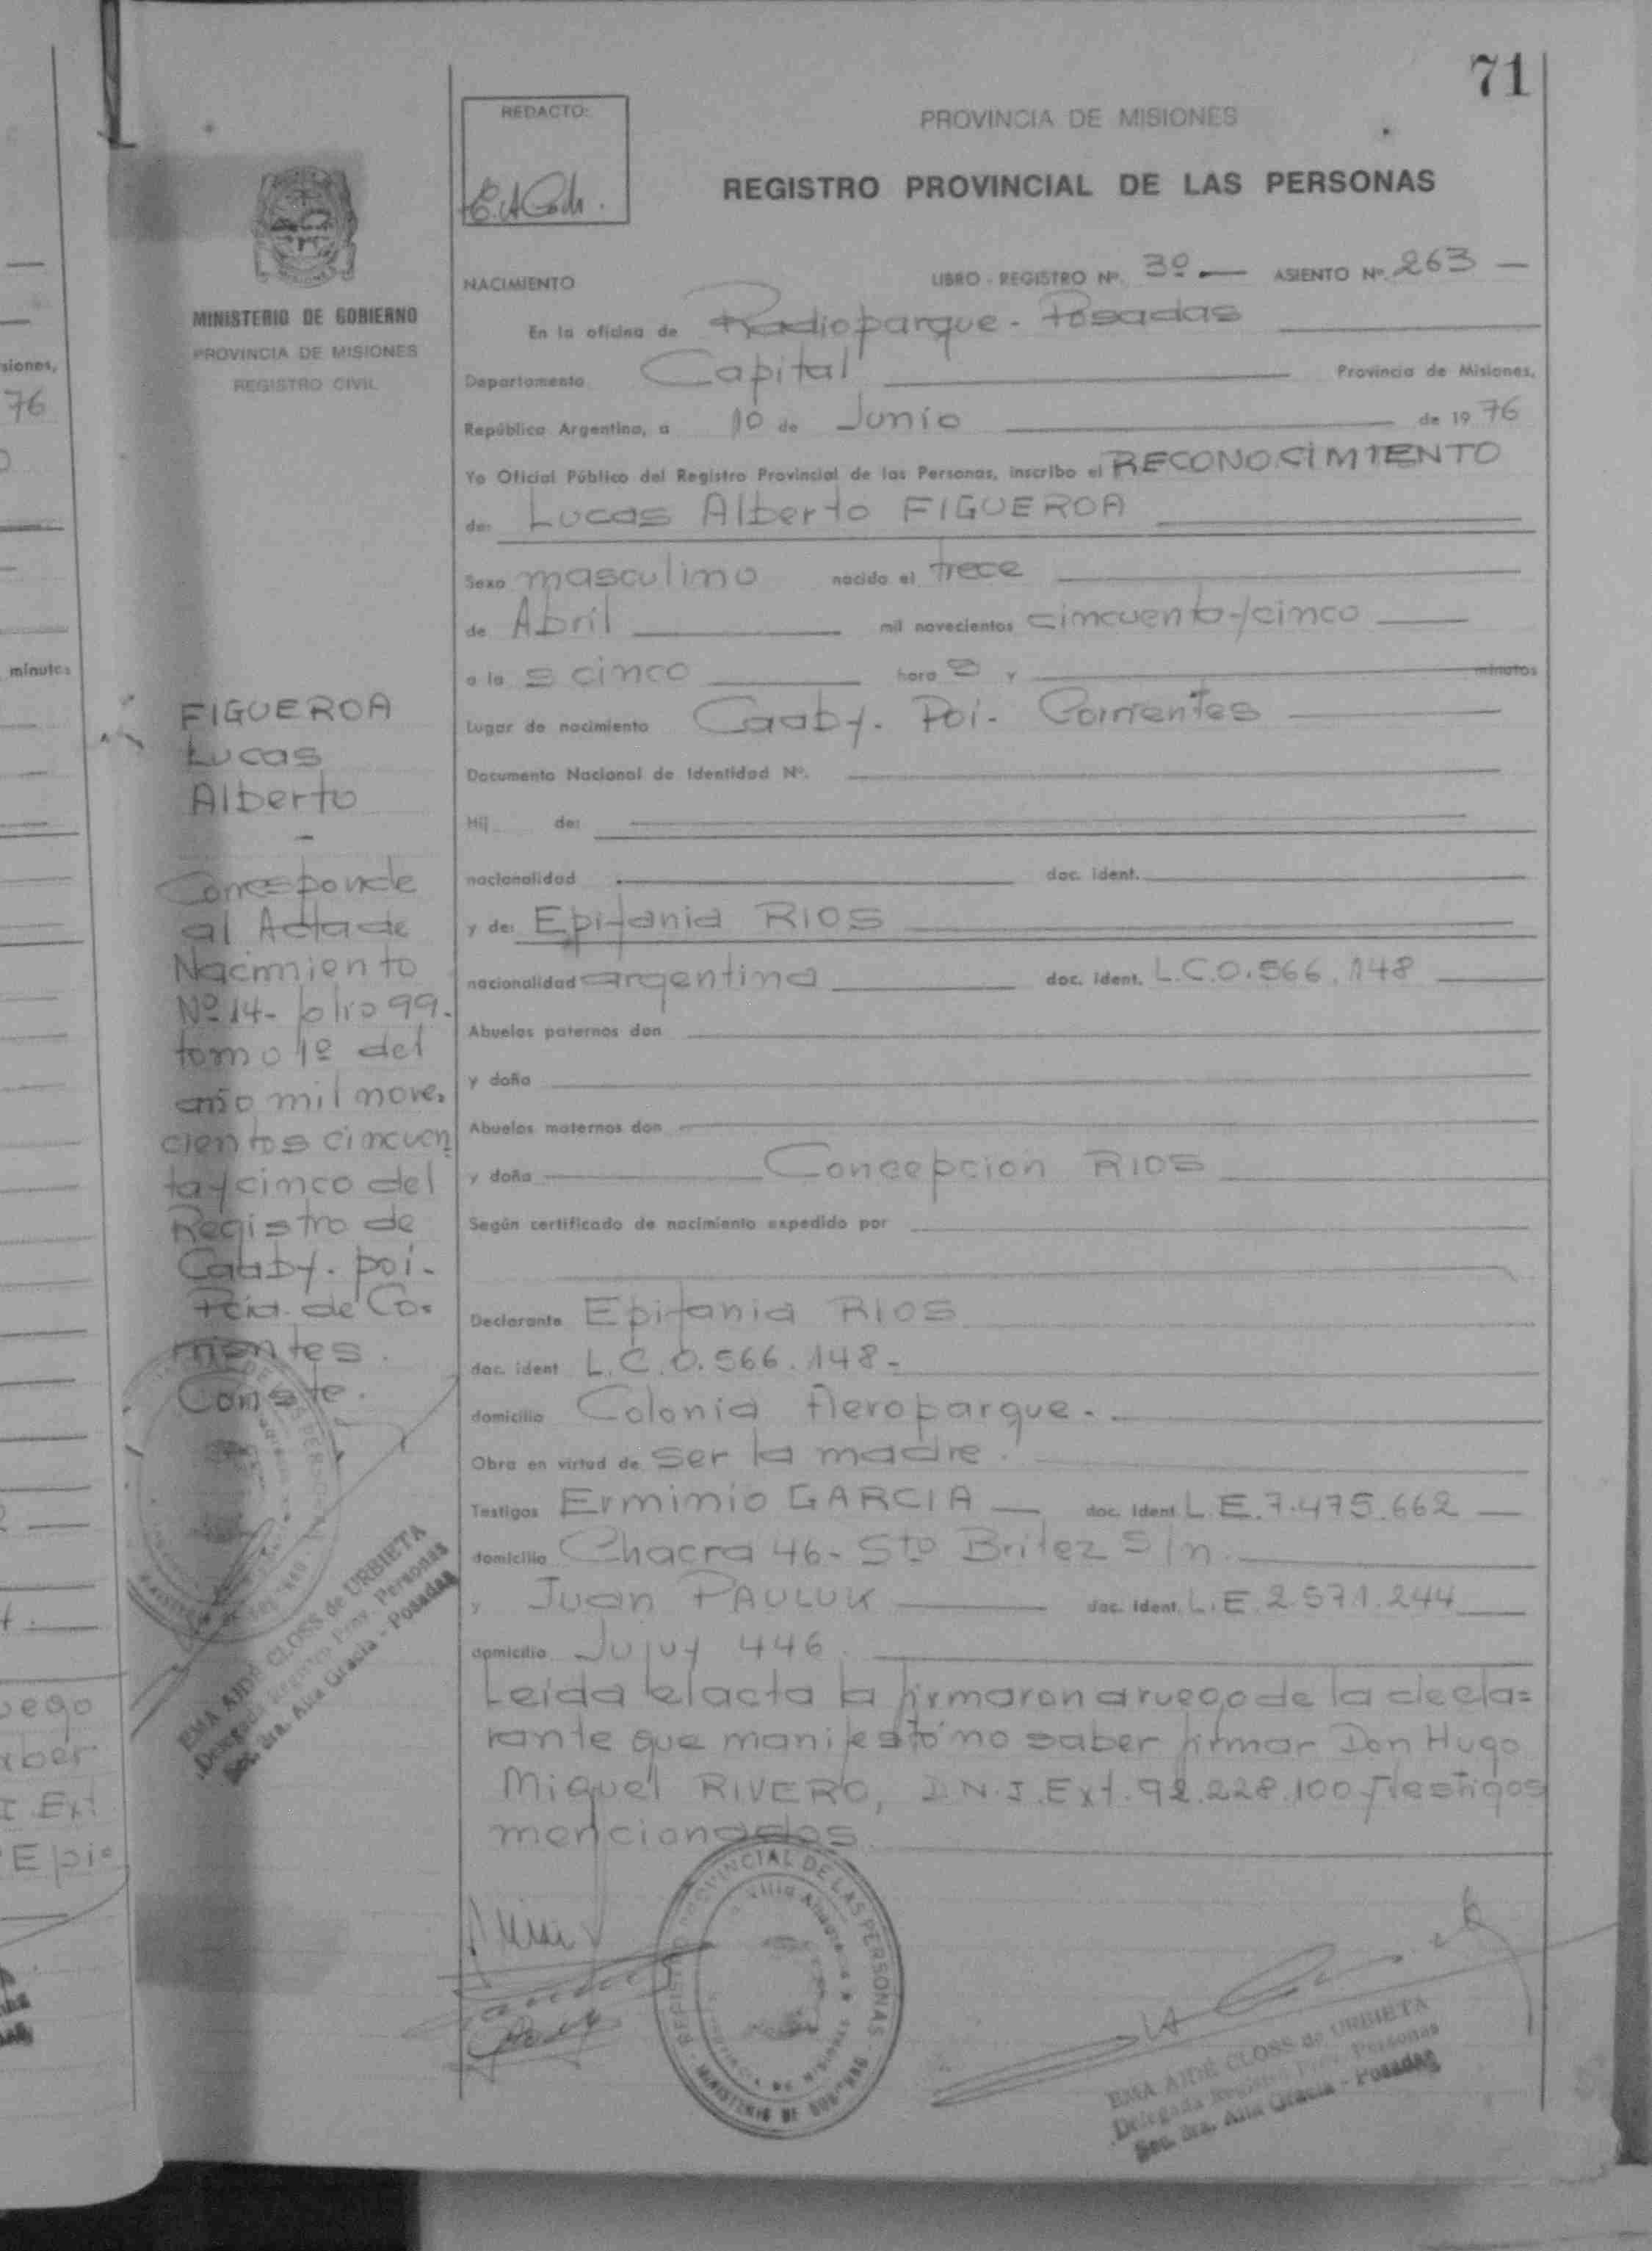 71
REDACTO:
PROVINCIA DE MISIONES
REGISTRO PROVINCIAL DE LAS PERSONAS
NACIMIENTO LIBRO - REGISTRO Nº. 3º — ASIENTO Nº. 263 —
En la oficina de Radioparque - Posadas
Departamento Capital Provincia de Misiones,
República Argentina, a 10 de Junio de 19 76
Yo Oficial Público del Registro Provincial de las Personas, inscribo el RECONOCIMIENTO
de: Lucas Alberto FIGUEROA
Sexo masculino nacido el trece
de Abril mil novecientos cincuenta y cinco
a la s cinco hora s y minutos
Lugar de nacimiento Caaby. Poi - Corrientes
Documento Nacional de Identidad Nº.
Hij de:
nacionalidad doc. ident.
y de: Epifania RIOS
nacionalidad argentina doc. ident. L.C.0.566.148
Abuelos paternos don
y doña
Abuelos maternos don
y doña Concepcion RIOS
Según certificado de nacimiento expedido por
Declarante Epifania RIOS
doc. ident L.C.0.566.148-
domicilio Colonia Aeroparque.
Obra en virtud de ser la madre.
Testigos Erminio GARCIA — doc. ident L.E.7.475.662 —
domicilio Chacra 46- Sto Britez S/n.
y Juan PAULUK doc. ident. L.E.2.571.244
domicilio Jujuy 446.
Leida el acta la firmaron a ruego de la decla=
rante que manifestó no saber firmar Don Hugo
Miguel RIVERO, D.N.I.Ext. 92.228.100 y testigos
mencionados
MINISTERIO DE GOBIERNO
PROVINCIA DE MISIONES
REGISTRO CIVIL
FIGUEROA
Lucas
Alberto
-
Corresponde
al Acta de
Nacimiento
Nº 14- folio 99.
tomo 1º del
año mil nove=
cientos cincuen
ta y cinco del
Registro de
Caaby. poi-
Pcia. de Co=
rrientes.
Conste.
EMA AIDE CLOSS de URBIETA
Delegada Registro Prov. Personas
Sec. 8ra. Alta Gracia - Posadas
REGISTRO PROVINCIAL DE LAS PERSONAS
MINISTERIO DE GOBIERNO
EMA AIDE CLOSS de URBIETA
Delegada Registro Prov. Personas
Sec. 8ra. Alta Gracia - Posadas
siones,
76
minutos
uego
Ext
Epi=